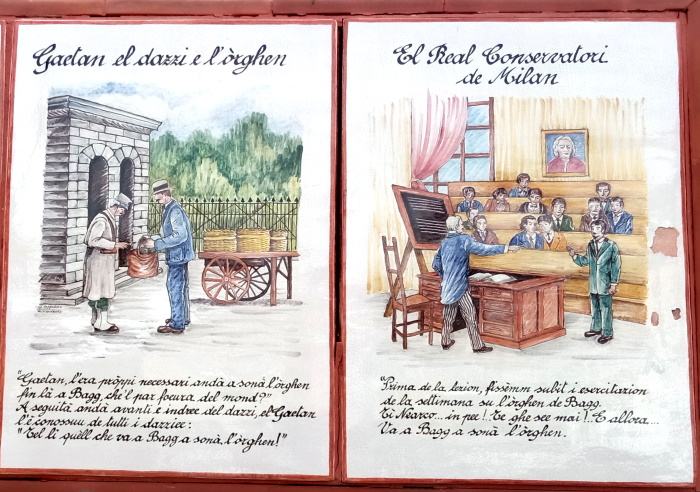 Gaetan el dazzi e l'òrghen
"Gaetan, l'era pròppi necessari andà a sonà l'òrghen
fin là a Bagg, che'l par foeura del mond?"
A seguità andà avanti e indree del dazzi, el Gaetan
l'è conossuu de tutti i dazziee:
"Tel li quèll che va a Bagg a sonà, l'òrghen!"
El Real Conservatori
de Milan
"Prima de la lezion, fissèmm subit i esercitazion
de la settimana su l'òrghen de Bagg.
Ti Nearco... in pee! Te ghe see mai!... E allora...
Va a Bagg a sonà l'òrghen.